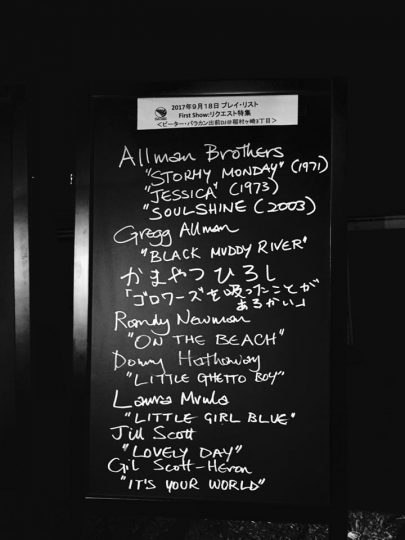 2017年9月18日 プレイ・リスト
First Show:リクエスト特集
<ピーター・バラカン出前DJ@稲村ヶ崎3丁目>
Allman Brothers
"STORMY MONDAY" (1971)
"JESSICA" (1973)
"SOULSHINE (2003)
Gregg Allman
"BLACK MUDDY RIVER"
かまやつひろし
「ゴロワーズを吸ったことが
あるかい」
Randy Newman
"ON THE BEACH"
Donny Hathaway
"LITTLE GHETTO BOY"
Laura Mvula
"LITTLE GIRL BLUE"
Jill Scott
"LOVELY DAY"
Gil Scott-Heron
"IT'S YOUR WORLD"